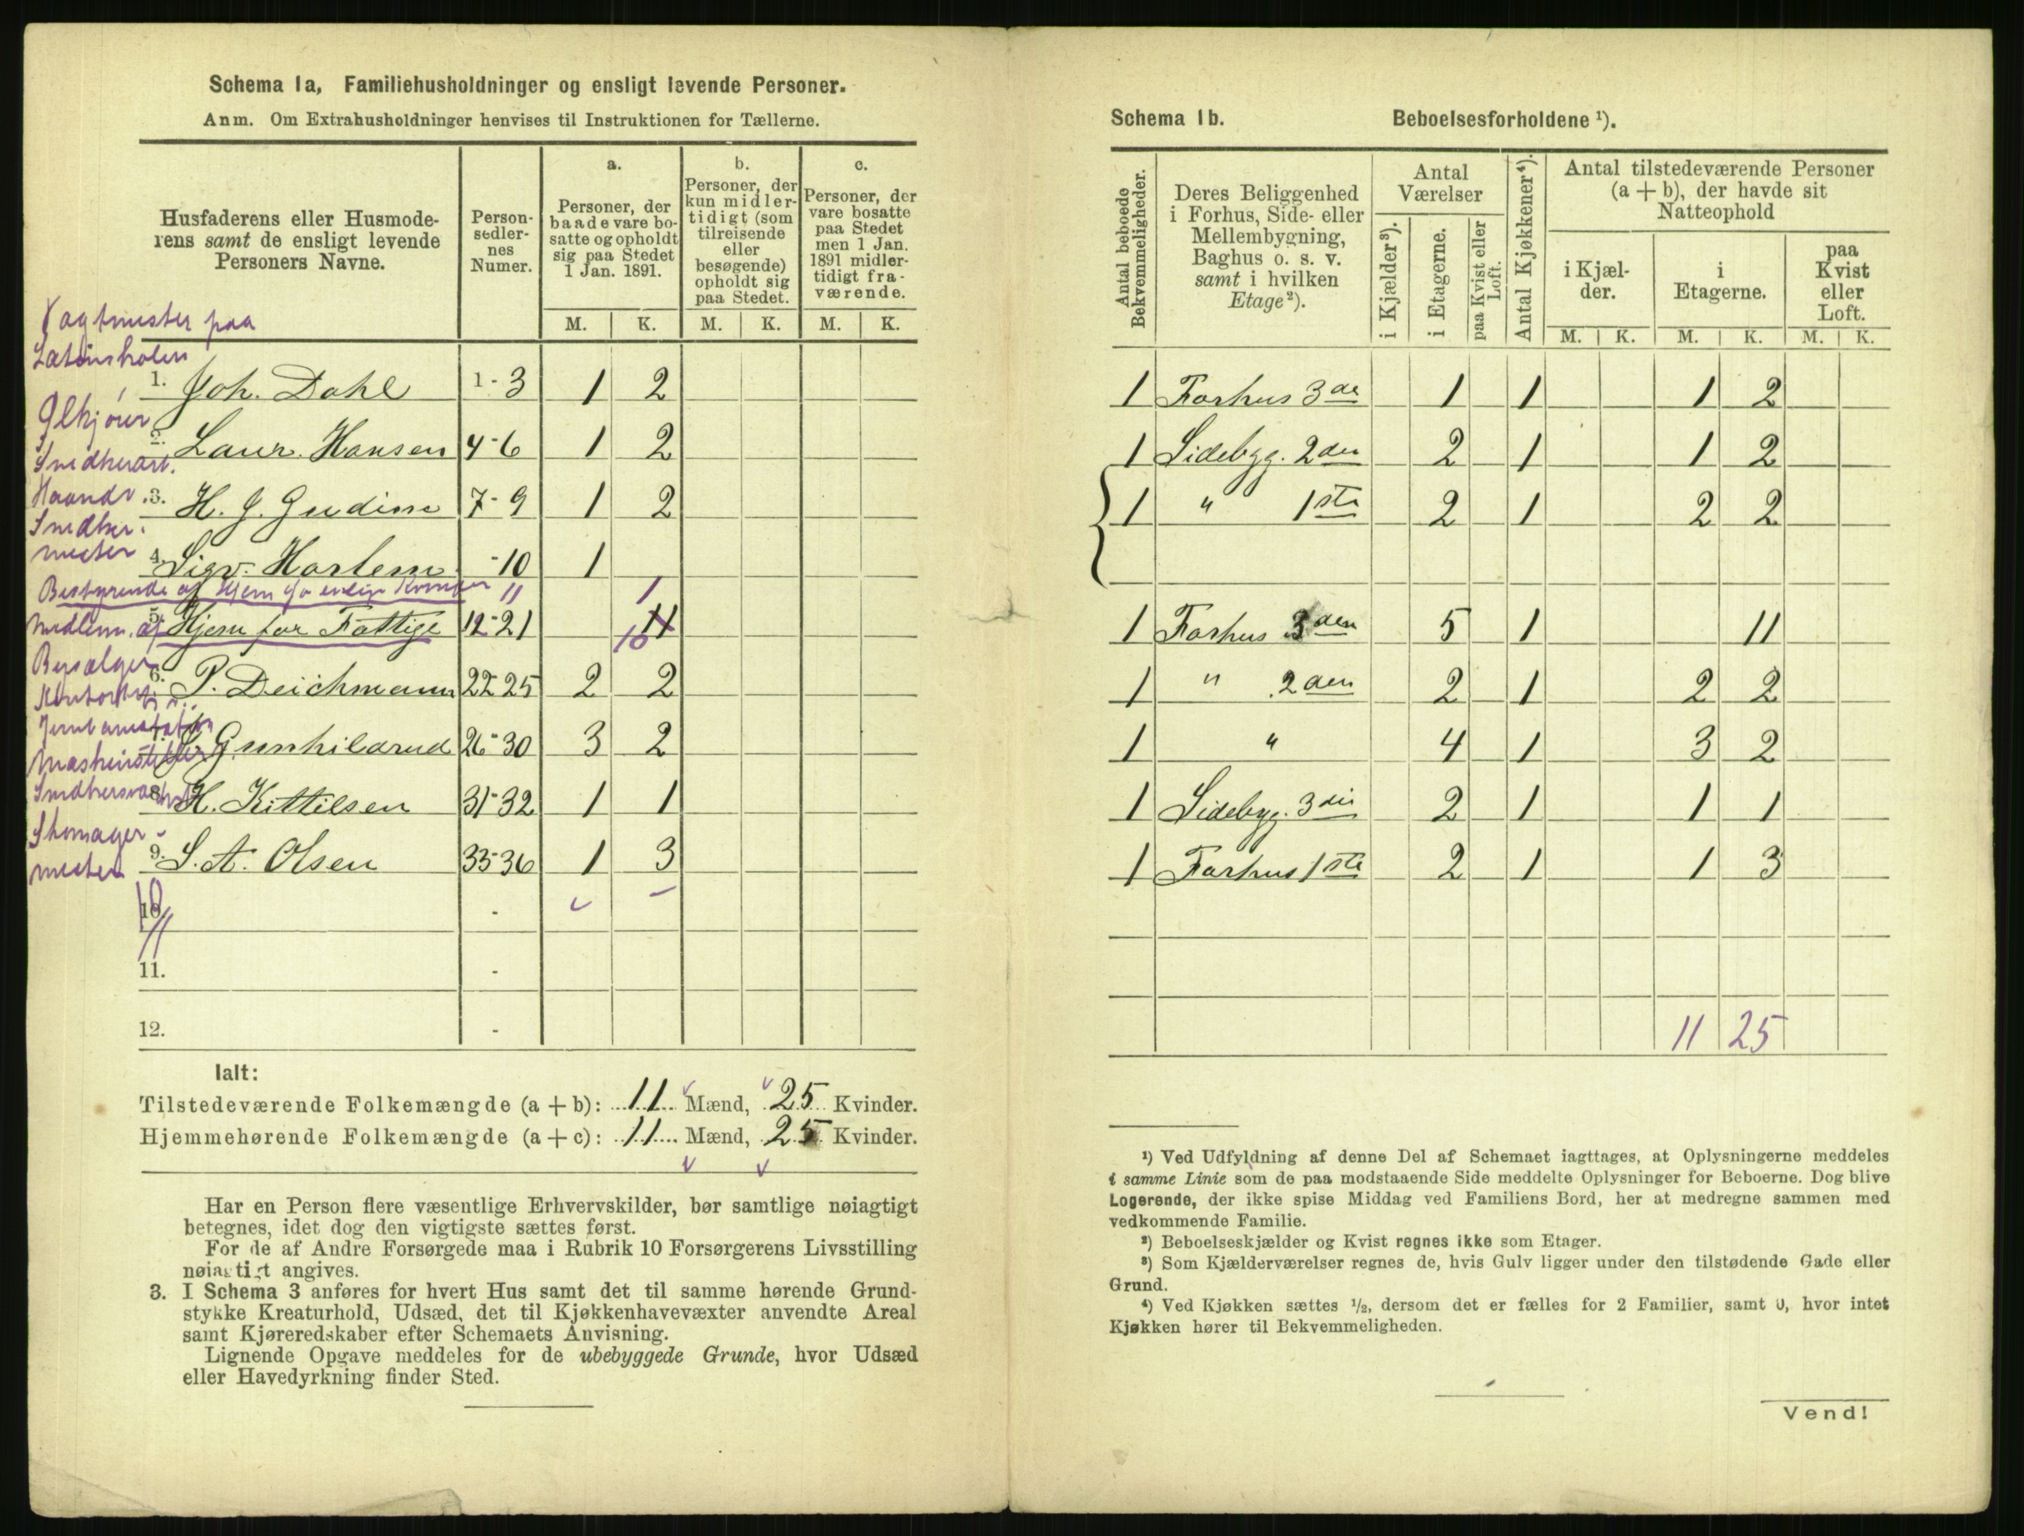 Schema 1a, Familiehusholdninger og ensligt levende Personer.
Anm. Om Extrahusholdninger henvises til Instruktionen for Tællerne.
Husfaderens eller Husmode-
rens samt de ensligt levende
Personers Navne.
Person-
sedler-
nes
Numer.
a.
Personer, der
baade vare bo-
satte og opholdt
sig paa Stedet
1 Jan. 1891.
b.
Personer, der
kun midler-
tidigt (som
tilreisende
eller
besøgende)
opholdt sig
paa Stedet.
c.
Personer, der
vare bosatte
paa Stedet
men 1 Jan.
1891 midler-
tidigt fra-
værende.
M. K. M. K. M. K.
Vagtmester paa
Latinskolen
1. Joh. Dahl 1-3 1 2
Ølkjører
2. Laur. Hansen 4-6 1 2
Snedkerarb.
3. H. J. Gudim 7-9 1 2
Haandv.
Snedker-
mester
4. Sigv. Harlem -10 1
Bestyrende af Hjem for enlige Kvinder 11 1
Medlem. af
5. Hjem for Fattige 12-21 11 10
6. P. Deichmann 22-25 2 2
7. Gunhildrud 26-30 3 2
8. H. Kittilsen 31-32 1 1
Skomager-
mester
9. S. A. Olsen 33-36 1 3
10. -
11. -
12. -
Ialt:
Tilstedeværende Folkemængde (a + b): 11 Mænd, 25 Kvinder.
Hjemmehørende Folkemængde (a + c): 11 Mænd, 25 Kvinder.
Har en Person flere væsentlige Erhvervskilder, bør samtlige nøiagtigt
betegnes, idet dog den vigtigste sættes først.
For de af Andre Forsørgede maa i Rubrik 10 Forsørgerens Livsstilling
nøiagtigt angives.
3. I Schema 3 anføres for hvert Hus samt det til samme hørende Grund-
stykke Kreaturhold, Udsæd, det til Kjøkkenhavevæxter anvendte Areal
samt Kjøreredskaber efter Schemaets Anvisning.
Lignende Opgave meddeles for de ubebyggede Grunde, hvor Udsæd
eller Havedyrkning finder Sted.
Schema 1b. Beboelsesforholdene ¹).
Antal beboede
Bekvemmeligheder.
Deres Beliggenhed
i Forhus, Side- eller
Mellembygning,
Baghus o. s. v.
samt i hvilken
Etage²).
Antal
Værelser
i Kjælder³).
i Etagerne.
paa Kvist eller
Loft.
Antal Kjøkkener⁴).
Antal tilstedeværende Personer
(a + b), der havde sit
Natteophold
i Kjæl-
der.
i
Etagerne.
paa
Kvist
eller
Loft.
M. K. M. K. M. K.
1 Forhus 3de 1 1 1 2
1 Sidebyg. 2den 2 1 1 2
1 " 1ste 2 1 2 2
1 Forhus 3den 5 1 11
1 " 2den 2 1 2 2
1 " 4 1 3 2
1 Sidebyg. 3die 2 1 1 1
1 Forhus 1ste 2 1 1 3
11 25
¹) Ved Udfyldning af denne Del af Schemaet iagttages, at Oplysningerne meddeles
i samme Linie som de paa modstaaende Side meddelte Oplysninger for Beboerne. Dog blive
Logerende, der ikke spise Middag ved Familiens Bord, her at medregne sammen med
vedkommende Familie.
²) Beboelseskjælder og Kvist regnes ikke som Etager.
³) Som Kjælderværelser regnes de, hvis Gulv ligger under den tilstødende Gade eller
Grund.
⁴) Ved Kjøkken sættes ½, dersom det er fælles for 2 Familier, samt 0, hvor intet
Kjøkken hører til Bekvemmeligheden.
Vend!